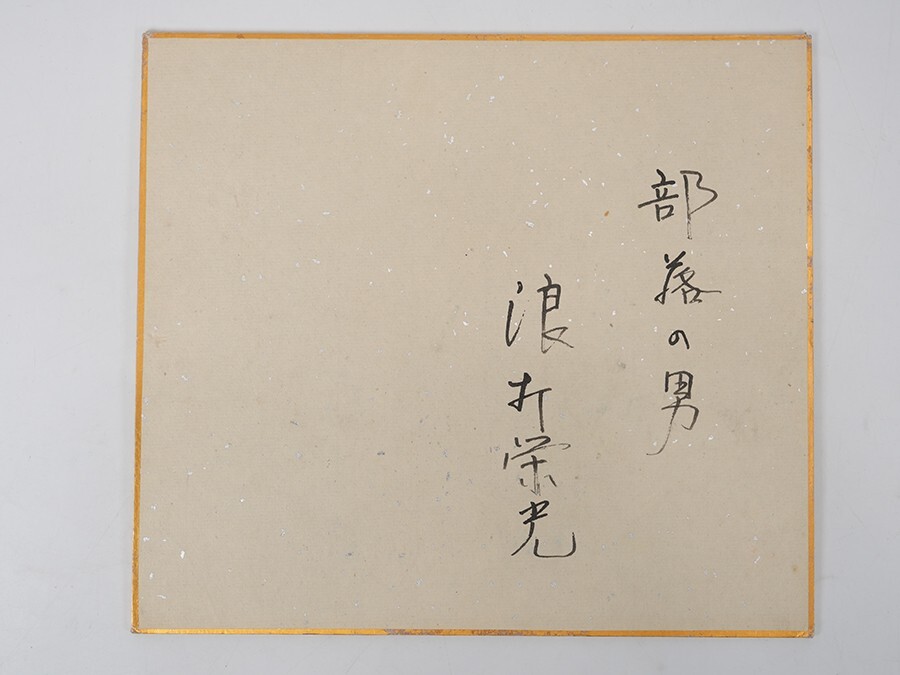 部落の男
浪打栄光